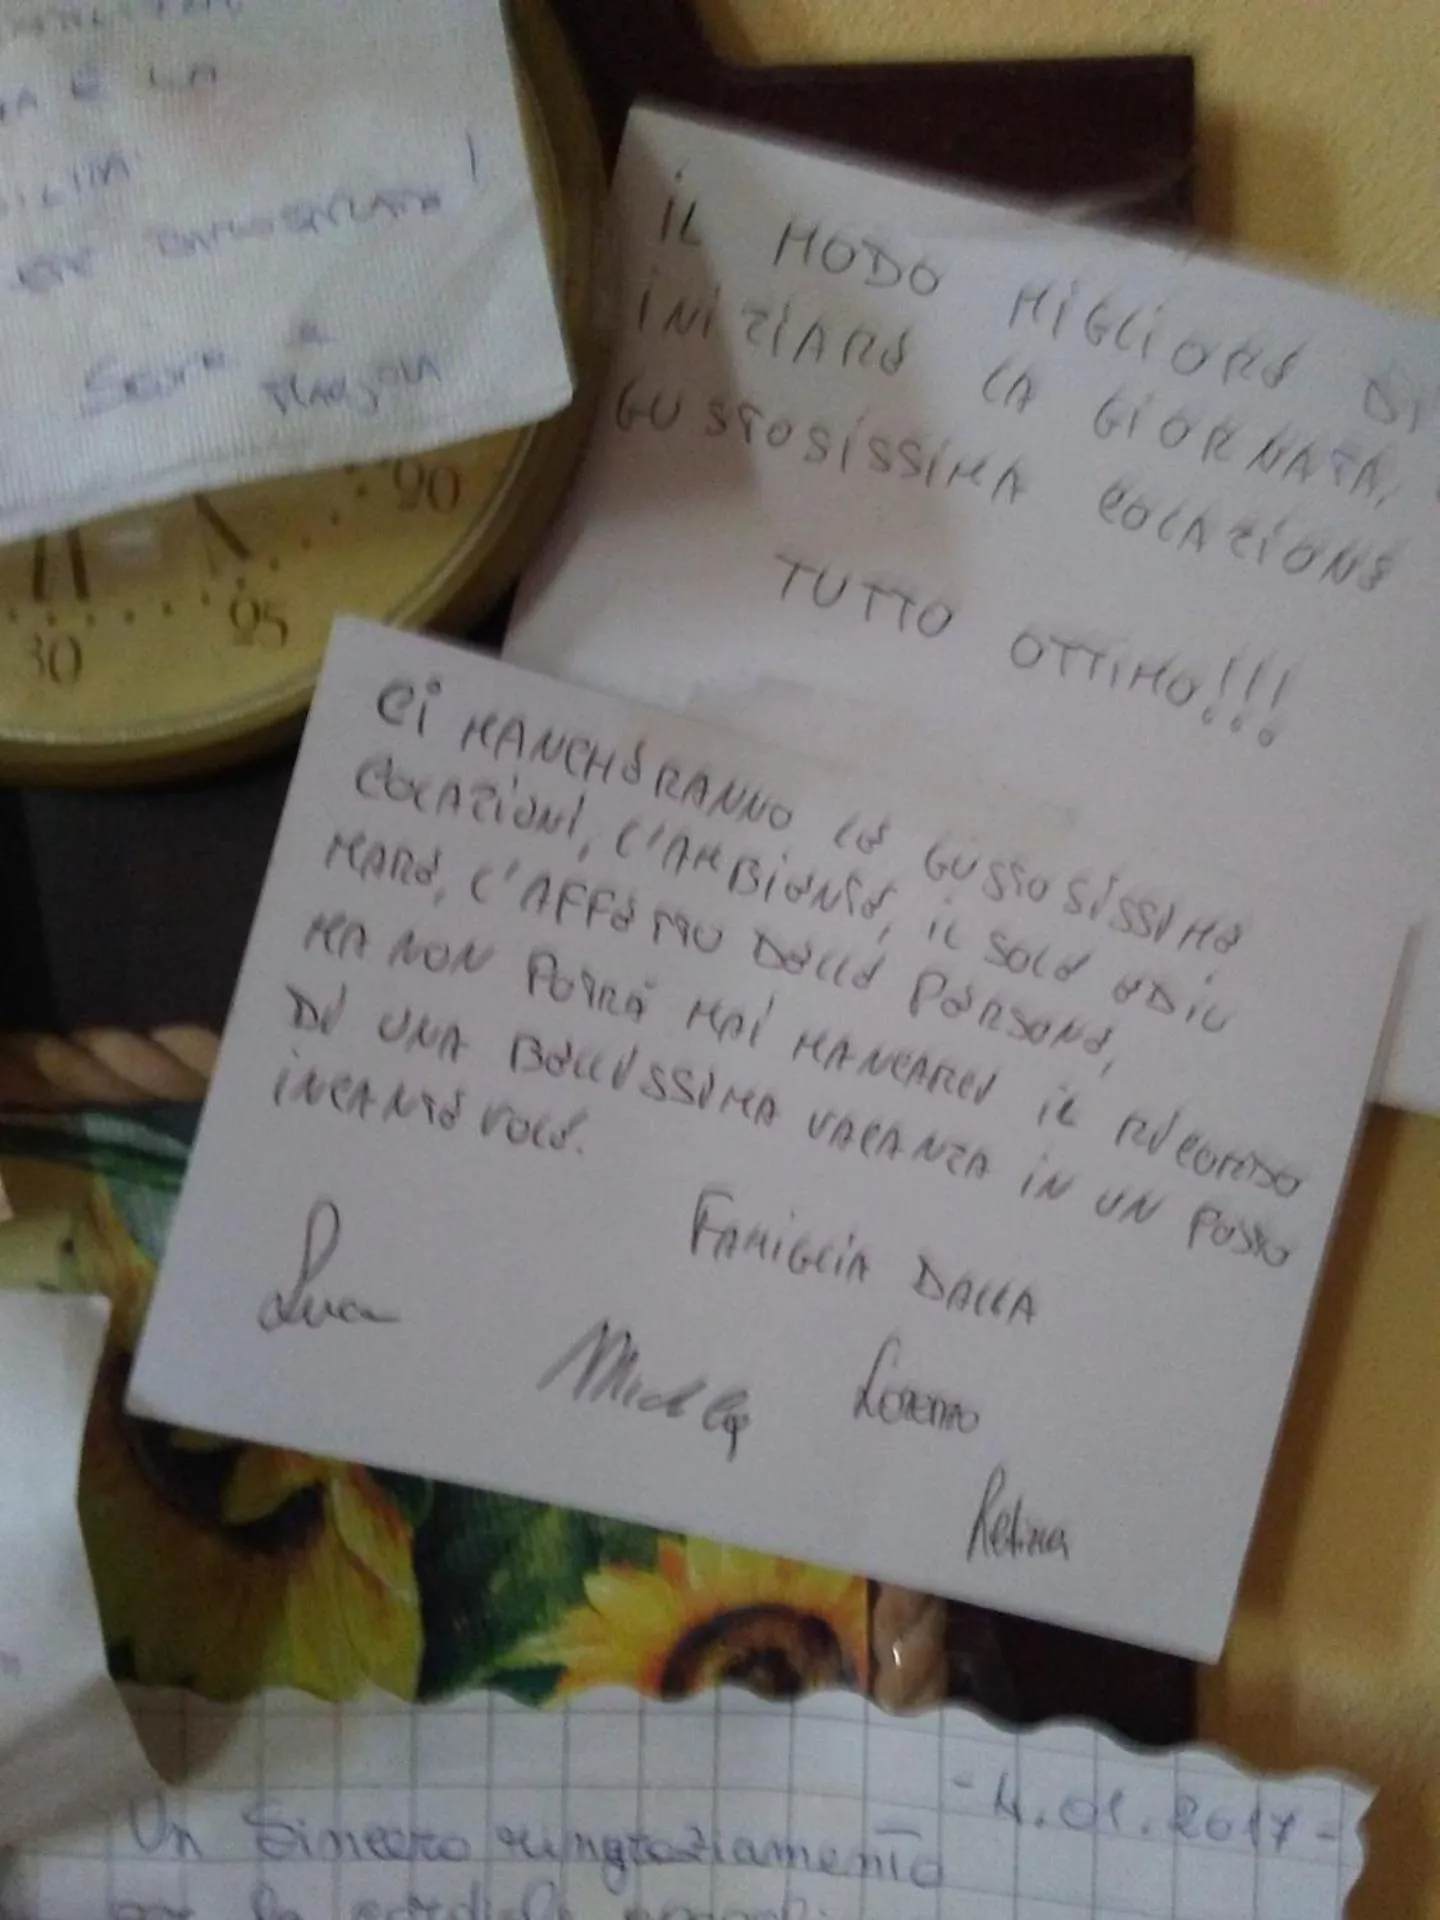 A È LA
!
IL MODO MIGLIORE DI
INIZIARE LA GIORNATA,
GUSTOSISSIMA COLAZIONE
TUTTO OTTIMO!!!
90
95
30
CI MANCHERANNO LE GUSTOSISSIME
COLAZIONI, L'AMBIENTE, IL SOLE ED IL
MARE, L'AFFETTO DELLE PERSONE,
MA NON POTRÀ MAI MANCARCI IL RICORDO
DI UNA BELLISSIMA VACANZA IN UN POSTO
INCANTEVOLE.
FAMIGLIA DALLA
Luca
Lorenzo
-4.01.2017-
Un Sincero ringraziamento
per la